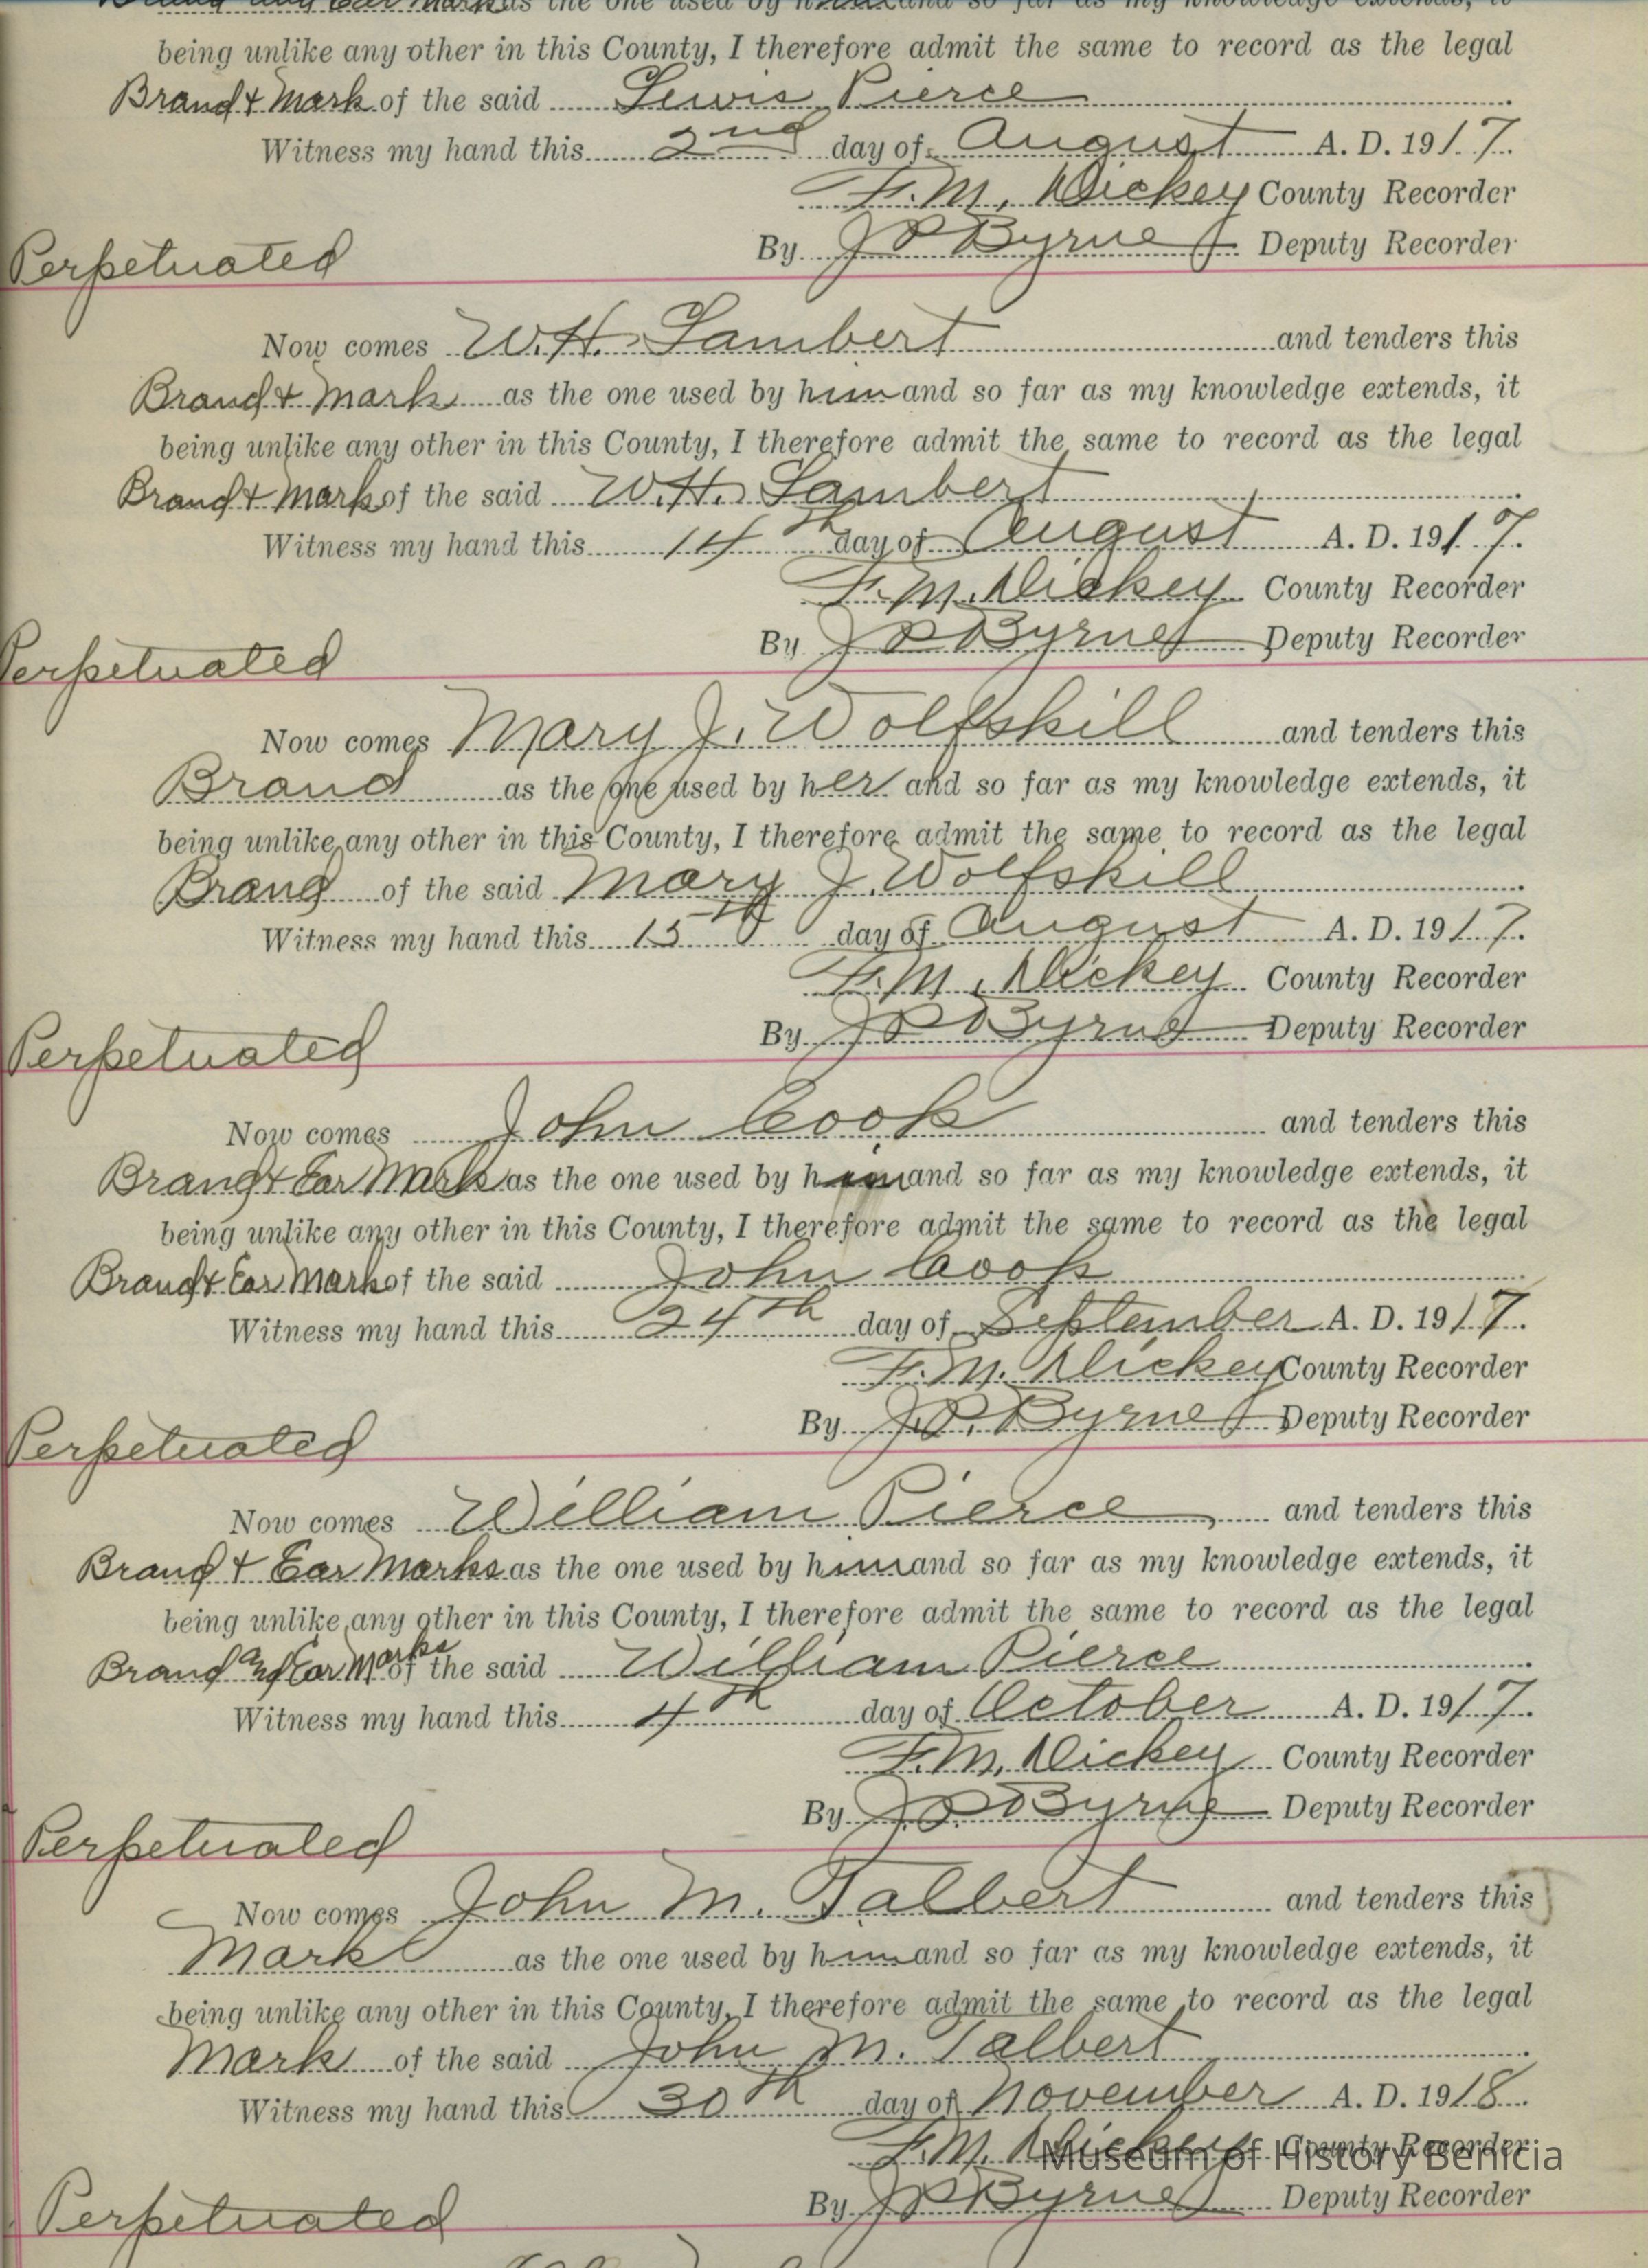 Brand and Ear Marks as the one used by him and so far as my knowledge extends, it
being unlike any other in this County, I therefore admit the same to record as the legal
Brand & Mark of the said Lewis Pierce
Witness my hand this 2nd day of August A. D. 1917.
F. M. Dickey County Recorder
By J P Byrne Deputy Recorder
Perpetuated
Now comes W. H. Lambert and tenders this
Brand & Mark as the one used by him and so far as my knowledge extends, it
being unlike any other in this County, I therefore admit the same to record as the legal
Brand & Mark of the said W. H. Lambert
Witness my hand this 14th day of August A. D. 1917.
F. M. Dickey County Recorder
By J P Byrne Deputy Recorder
Perpetuated
Now comes Mary J. Wolfskill and tenders this
Brand as the one used by her and so far as my knowledge extends, it
being unlike any other in this County, I therefore admit the same to record as the legal
Brand of the said Mary J. Wolfskill
Witness my hand this 15th day of August A. D. 1917.
F. M. Dickey County Recorder
By J P Byrne Deputy Recorder
Perpetuated
Now comes John Cook and tenders this
Brand & Ear Mark as the one used by him and so far as my knowledge extends, it
being unlike any other in this County, I therefore admit the same to record as the legal
Brand & Ear Mark of the said John Cook
Witness my hand this 24th day of September A. D. 1917.
F. M. Dickey County Recorder
By J. P. Byrne Deputy Recorder
Perpetuated
Now comes William Pierce and tenders this
Brand & Ear Marks as the one used by him and so far as my knowledge extends, it
being unlike any other in this County, I therefore admit the same to record as the legal
Brand and Ear Marks of the said William Pierce
Witness my hand this 4th day of October A. D. 1917.
F. M. Dickey County Recorder
By J. P. Byrne Deputy Recorder
Perpetuated
Now comes John M. Talbert and tenders this
Mark as the one used by him and so far as my knowledge extends, it
being unlike any other in this County, I therefore admit the same to record as the legal
Mark of the said John M. Talbert
Witness my hand this 30th day of November A. D. 1918.
F. M. Dickey County Recorder
Museum of History Benicia
By J P Byrne Deputy Recorder
Perpetuated